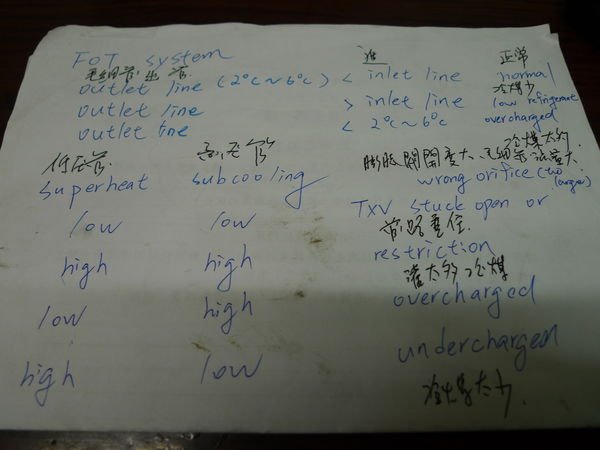 FOT system 進 正常
毛細管出管
outlet line (2°C~6°C) < inlet line normal
冷煤少
outlet line > inlet line low refrigerant
outlet line < 2°C~6°C overcharged
冷煤太多
低压管 高压管 膨胀閥開度太大、毛細管流量大
superheat subcooling wrong orifice (two larger)
TXV stuck open or
low low
restriction
high high
灌太多冷煤
low high overcharged
high low undercharged
冷煤太少